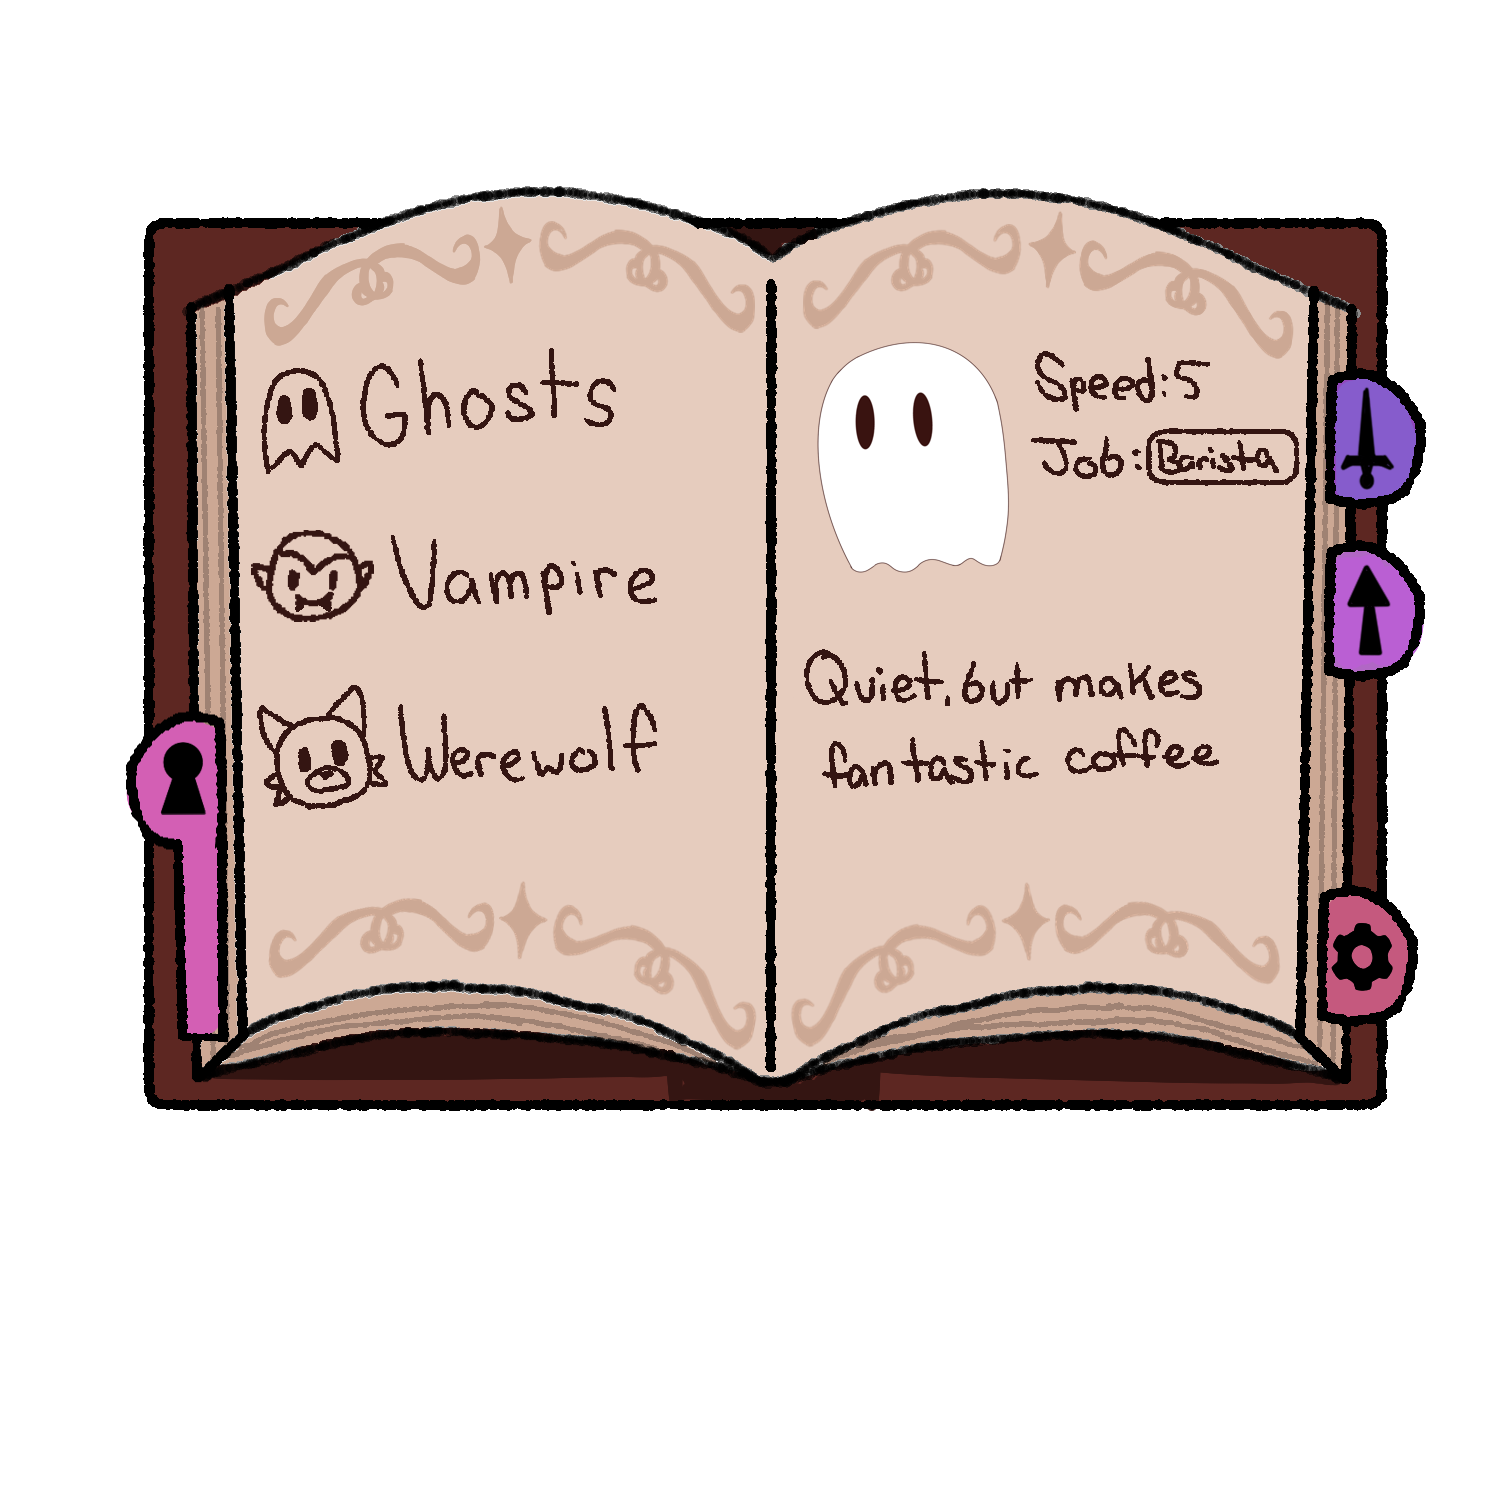 Ghosts
Vampire
Werewolf
Speed:5
Job:Barista
Quiet, but makes
fantastic coffee